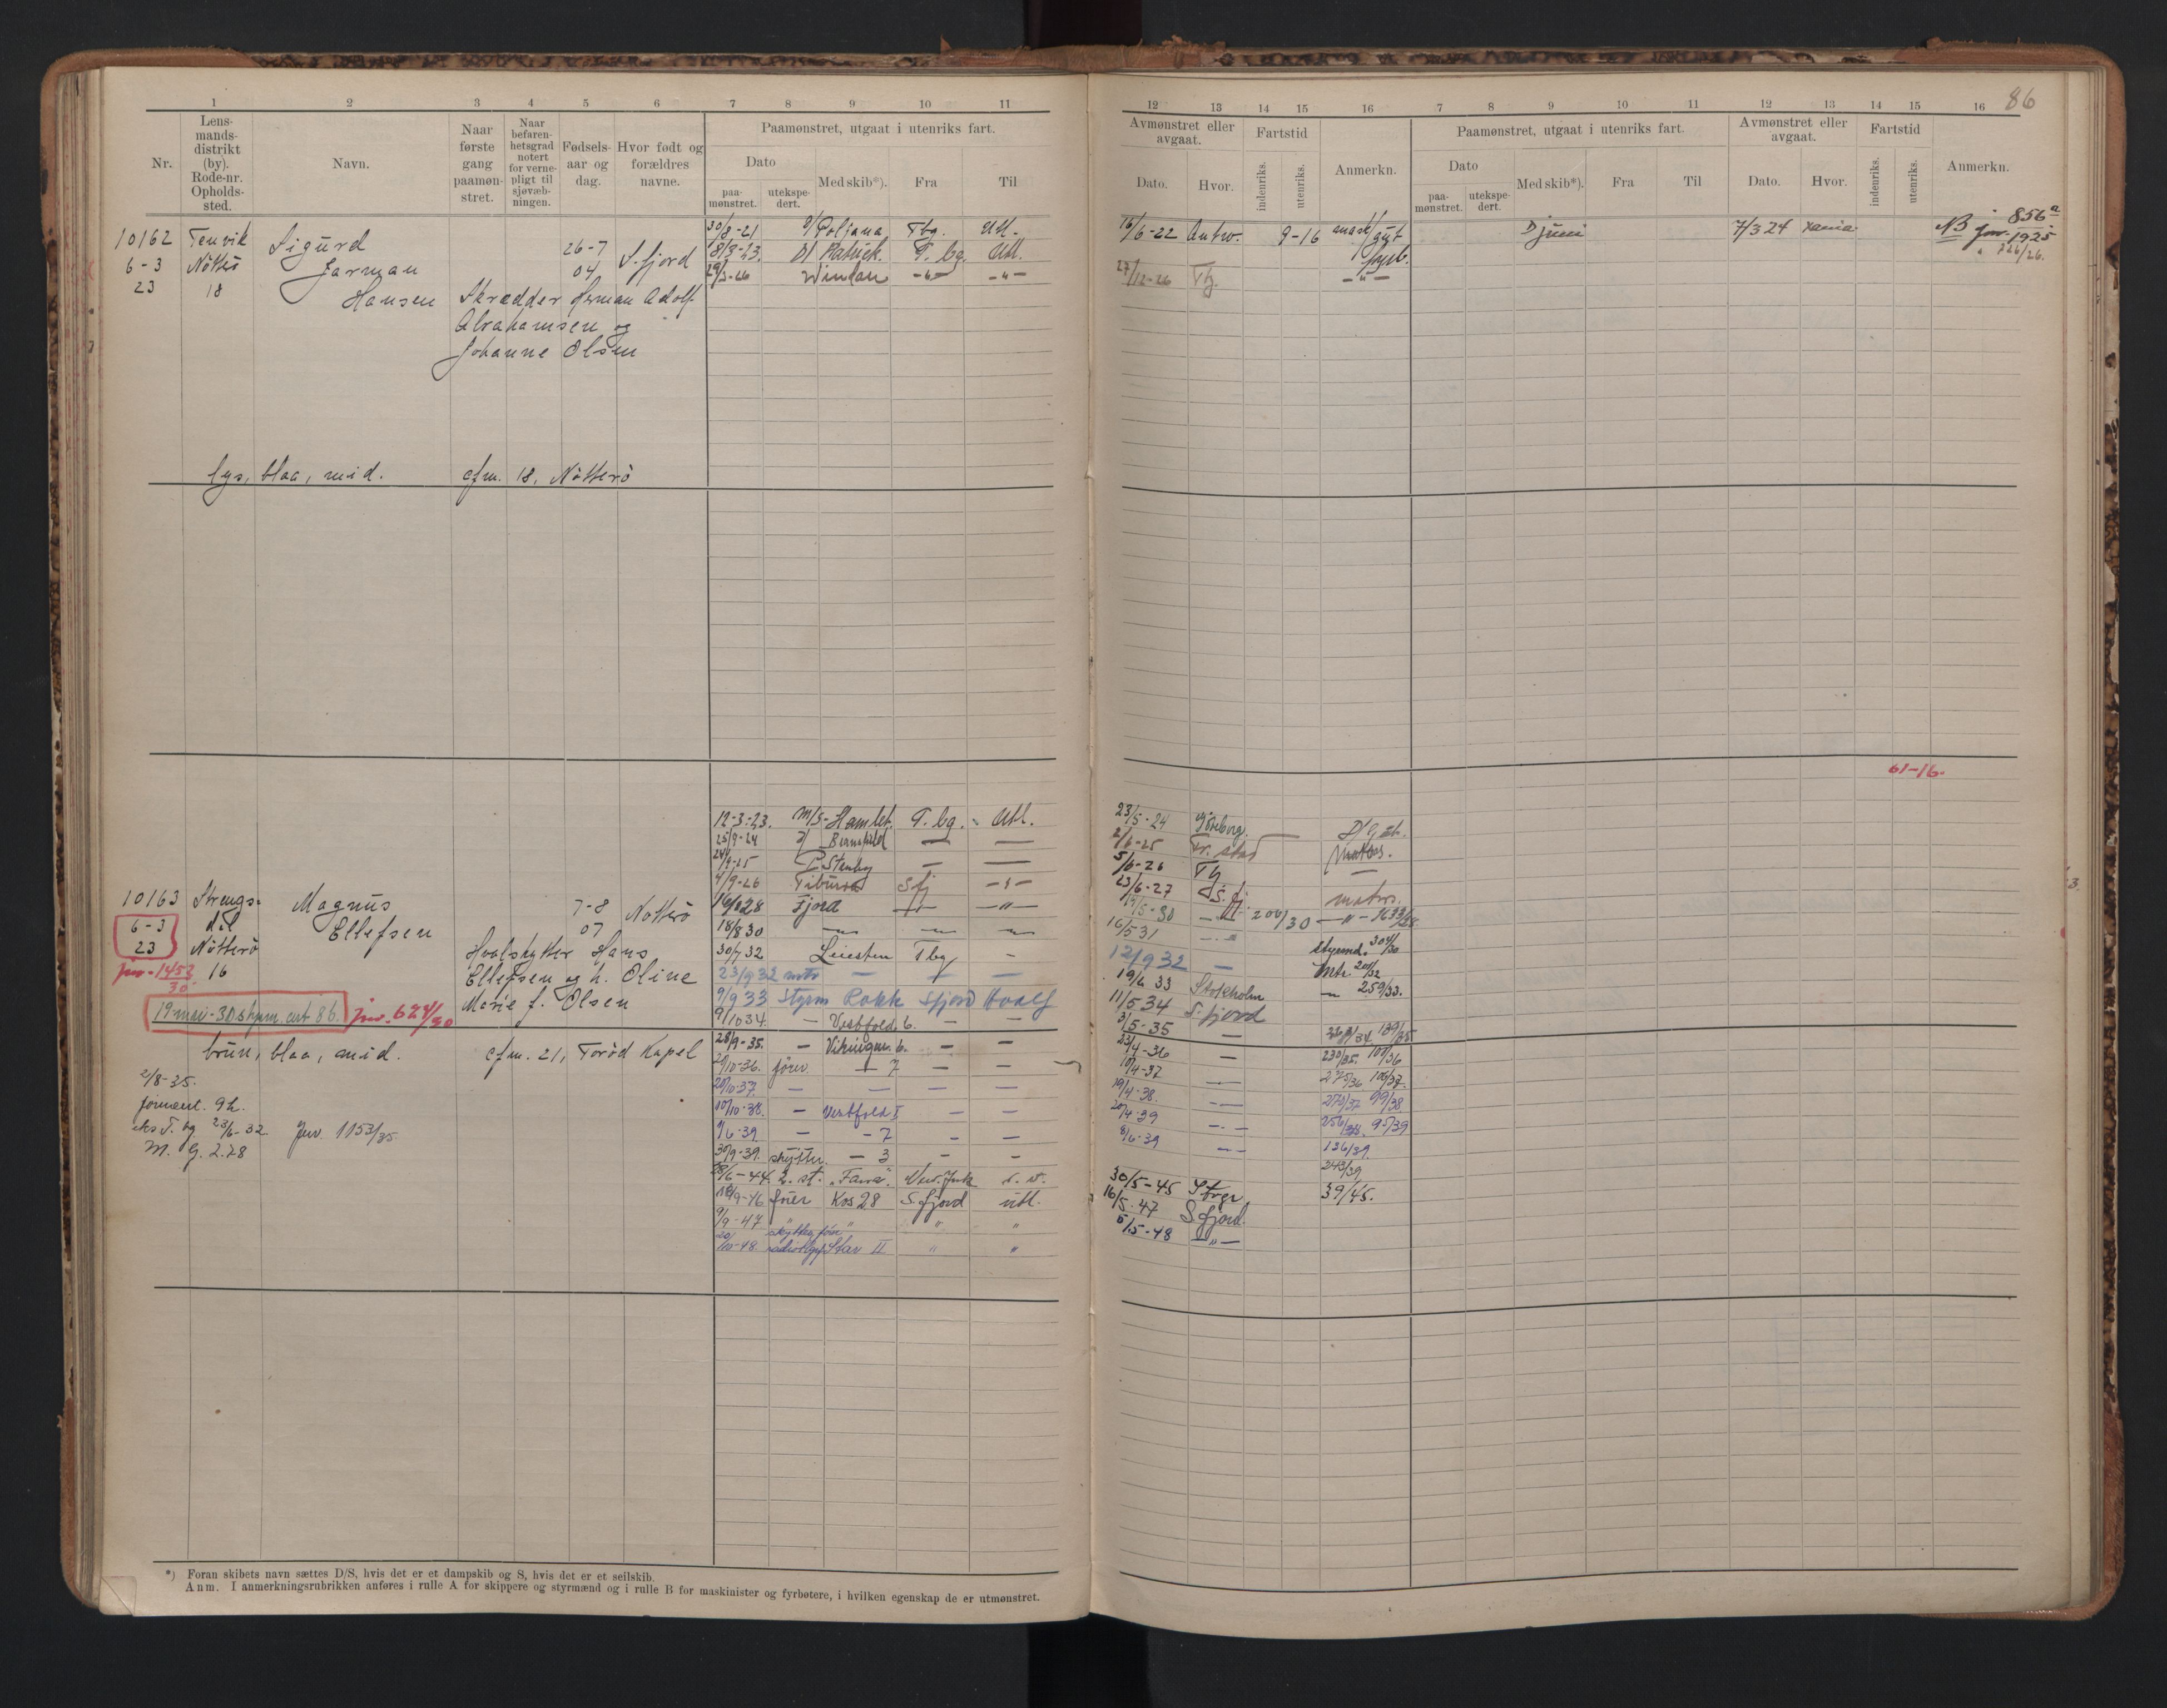 1 2 3 4 5 6 7 8 9 10 11
Nr.
Lens-
mands-
distrikt
(by).
Rode-nr.
Opholds-
sted.
Navn.
Naar
første
gang
paamøn-
stret.
Naar
befaren-
hetsgrad
notert
for verne-
pligt til
sjøvæb-
ningen.
Fødsels-
aar og
dag.
Hvor født og
forældres
navne.
Paamønstret, utgaat i utenriks fart.
Dato
paa-
mønstret.
utekspe-
dert.
Med skib*).
Fra
Til
10162 Tenvik Sigurd 26-7 S. fjord
6-3 Nøtterø Jarman 04
23 18 Hansen Skrædder Herman Adolf
Abrahamsen og
Johanne Olsen
30/8-21 Poljana Tbg. Utl.
8/3-23. D/ Patrick. T. bg. Utl.
Windau -"- -"-
lys, blaa, mid. cfm. 18, Nøtterø
12-3-23. M/S-Hamlet. T. bg. - Utl.
25/9-24
D. Stenby — —
4/9-26 Sfj -"-
Fjord -"-
18/8 30
30/7 32 Leiesten Tbg —
23/9 32 mtr — — —
9/9 33 Styrm Rokk Sfjord Hvalf
9/10 34. — Vestfold. 6. — —
28/9-35. — Vikingen. 6. — —
/10-36. 7 — —
/10-37. — — — —
10/10-38. — Vestfold I — —
/6-39. — -7 — —
30/9-39. skytter. — 3 — —
/6-44. 2. st. New. York
/9-46 Kos 28 S. fjord utl.
9/9-47 " " "
20/10-48 Star II " "
10163 Strengs- Magnus 7-8 Nøtterø
6-3 dal Ellefsen 07
23 Nøtterø Hvalskytter Hans
jnr. 1453/30 16 Ellefsen og h. Oline
19 mai-30 Marie f. Olsen
jnr. 624/30
brun, blaa, mid. cfm. 21, Torød Kapel
2/8-35.
23/6-32 Jnr. 1153/35
M. G. 2.28
*) Foran skibets navn sættes D/S, hvis det er et dampskib og S, hvis det er et seilskib.
Anm. I anmerkningsrubrikken anføres i rulle A for skippere og styrmænd og i rulle B for maskinister og fyrbøtere, i hvilken egenskap de er utmønstret.
12 13 14 15 16 7 8 9 10 11 12 13 14 15 16 86
Avmønstret eller
avgaat.
Dato.
Hvor.
Fartstid
indenriks.
utenriks.
Anmerkn.
Paamønstret, utgaat i utenriks fart.
Dato
paa-
mønstret.
utekspe-
dert.
Med skib*).
Fra
Til
Avmønstret eller
avgaat.
Dato.
Hvor.
Fartstid
indenriks.
utenriks.
Anmerkn.
16/6-22 Antw. 9-16 7/3 24 Xania NB jnr. 856 1925
27/12-26 Tbg. -"- 226/26.
61-16.
23/5-24 Gøteborg.
2/6-25 Fr. stad
5/6-26 Tbg
23/6-27 S. fj. matros.
19/5-30 -"- 200/30 -"- 1633/28
16/5 31 styrmd. 304/30
12/9 32 — Mtr. 201/32
19/6 33 Stokholm — 259/33.
11/5 34 S. fjord
3/5-35 — 139/35
23/4-36 — 230/35. 107/36
10/4-37 — 275/36 106/37.
19/4-38. — 273/37 99/38
20/4-39 — 256/38. 95/39
8/6-39 — 136/39.
243/39
30/5-45 39/45.
16/5-47 S. fjord.
5/5-48 -"-